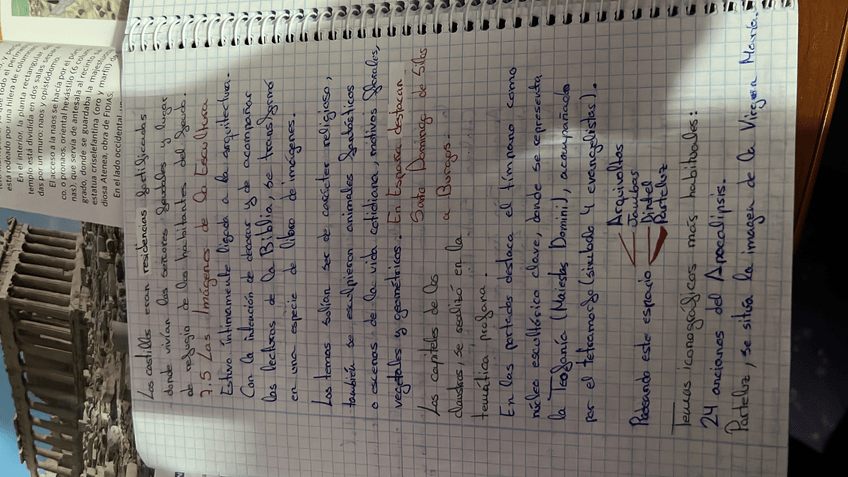 Los castillos eran residencias fortificadas
donde vivían los señores feudales y lugar
de refugio de los habitantes del feudo.
7.5 Las Imágenes de la Escultura
Estuvo íntimamente ligada a la arquitectura.
Con la intención de decorar y de acompañar
las lecturas de la Biblia, se transformó
en una especie de libro de imágenes.
Los temas solían ser de carácter religioso,
también se esculpieron animales fantásticos
o escenas de la vida cotidiana, motivos florales,
vegetales y geométricos. En España destacan
Santo Domingo de Silos
a Burgos.
Los capiteles de los
claustros, se realizó en la
temática profana.
En las portadas destaca el tímpano como
núcleo escultórico clave, donde se representa
la Teofanía (Maiestas Domini), acompañado
por el tetramorfo (simbolo 4 evangelistas).
Rodeando este espacio
Arquivoltas
Jambas
Dintel
Parteluz
Temas iconográficos más habituales:
24 ancianos del Apocalipsis.
Parteluz, se sitúa la imagen de la Virgen María.
En el interior, la planta rectangular
templo está dividida en dos salas
das por un muro: naos y opistódomo
El acceso a la naos se hacía por el
co, o pronaos, oriental hexástilo (6
nas), que servía de antesala al recinto
grado, donde se guardaba la majestuosa
estatua criselefantina (oro y marfil)
diosa Atenea, obra de FIDIAS.
En el lado occidental